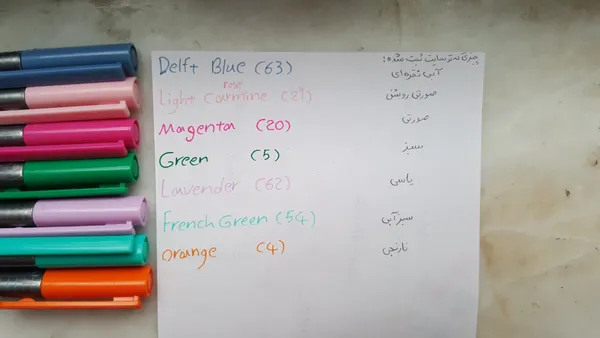 چیزی که تو سایت ثبت شده:
Delft Blue (63) آبی نقره‌ای
rose
Light Carmine (29) صورتی روشن
Magenta (20) صورتی
Green (5) سبز
Lavender (62) یاسی
French Green (54) سبز آبی
Orange (4) نارنجی